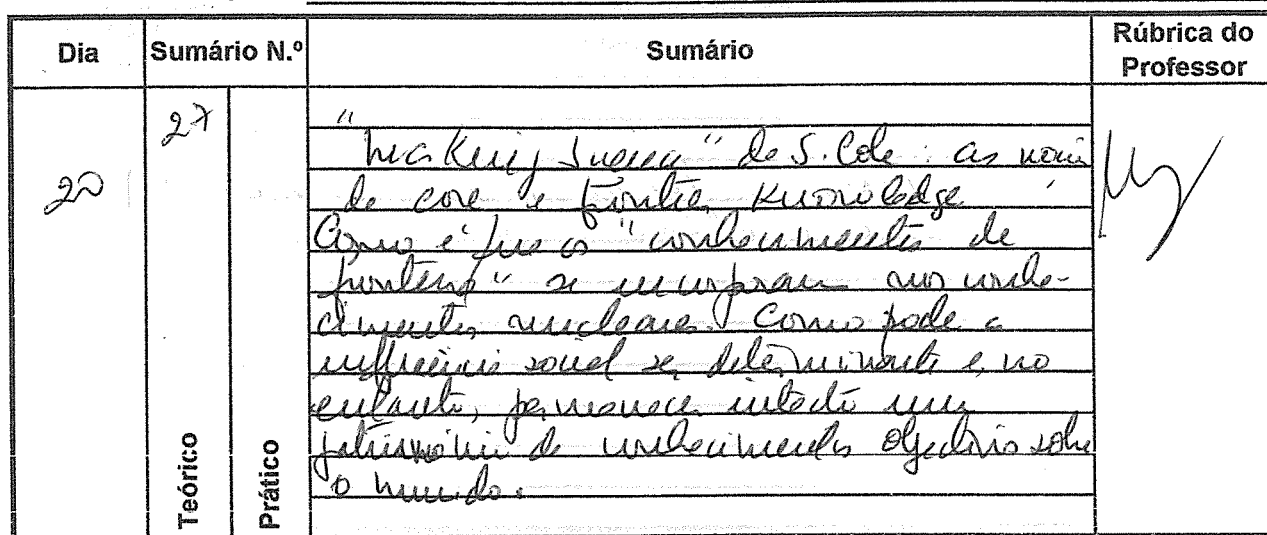 Dia Sumário N.º Sumário Rúbrica do Professor
20
27
Teórico
Prático
"Making Science" de S. Cole: as noções
de core e frontier knowledge.
Como é que os "conhecimentos de
fronteira" se incorporam nos conhe-
cimentos nucleares. Como pode a
influência social ser determinante e, no
entanto, permanecer intacto um
património de conhecimentos objectivos sobre
o mundo.